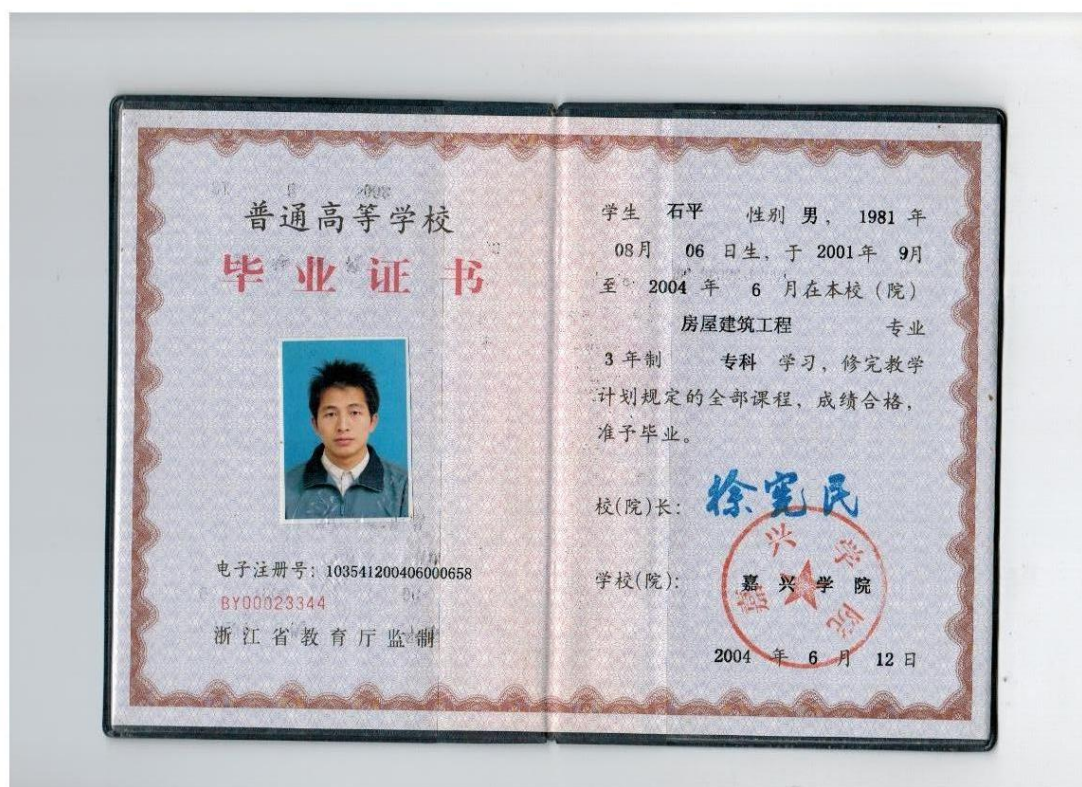 普通高等学校
毕业证书
电子注册号：103541200406000658
BY00023344
浙江省教育厅监制
学生 石平 性别 男，1981 年
08月 06 日生，于 2001年 9月
至 2004 年 6 月在本校（院）
房屋建筑工程 专业
3 年制 专科 学习，修完教学
计划规定的全部课程、成绩合格，
准予毕业。
校(院)长：徐宪民
学校(院)：嘉兴学院
嘉兴学院
2004 年 6 月 12 日